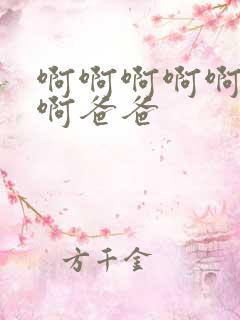 啊啊啊啊啊
啊爸爸
方千金